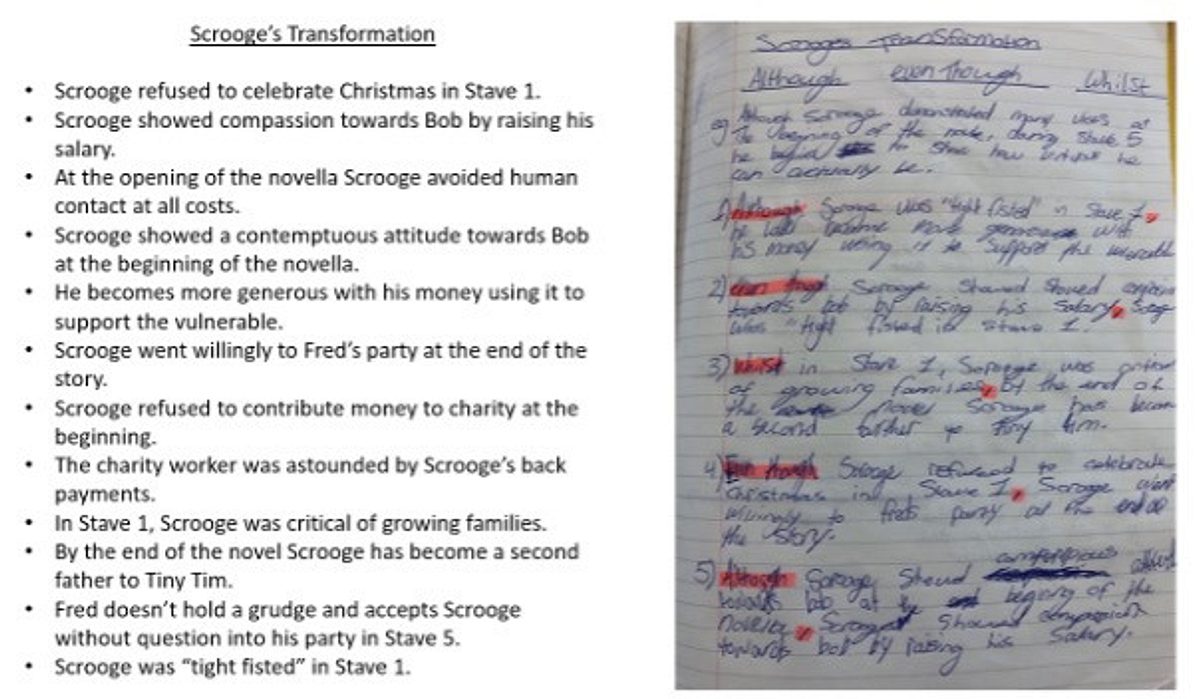 Scrooge's Transformation
• Scrooge refused to celebrate Christmas in Stave 1.
• Scrooge showed compassion towards Bob by raising his
salary.
• At the opening of the novella Scrooge avoided human
contact at all costs.
• Scrooge showed a contemptuous attitude towards Bob
at the beginning of the novella.
• He becomes more generous with his money using it to
support the vulnerable.
• Scrooge went willingly to Fred's party at the end of the
story.
• Scrooge refused to contribute money to charity at the
beginning.
• The charity worker was astounded by Scrooge's back
payments.
• In Stave 1, Scrooge was critical of growing families.
• By the end of the novel Scrooge has become a second
father to Tiny Tim.
• Fred doesn't hold a grudge and accepts Scrooge
without question into his party in Stave 5.
• Scrooge was "tight fisted" in Stave 1.
Scrooges Transformation
Although even Though Whilst
eg Although Scrooge demonstrated many at
The beginning of the during Stave 5
he to show how he
can actually be.
1) Although Scrooge was "tight fisted" in Stave 1,
he more with
his money using it to support the
2) even though Scrooge showed showed
towards bob by raising his salary,
was "tight fisted in stave 1.
3) Whilst in Stave 1, Scrooge was
of growing families, By the end of
the novel Scrooge has
a second to Tiny tim.
4) Even though Scrooge refused to celebrate
Christmas in Stave 1, Scrooge went
willingly to freds party at the end
the story.
5) Although Scrooge Showed
towards bob at the of the
, Scrooge showed
towards bob by raising his Salary.